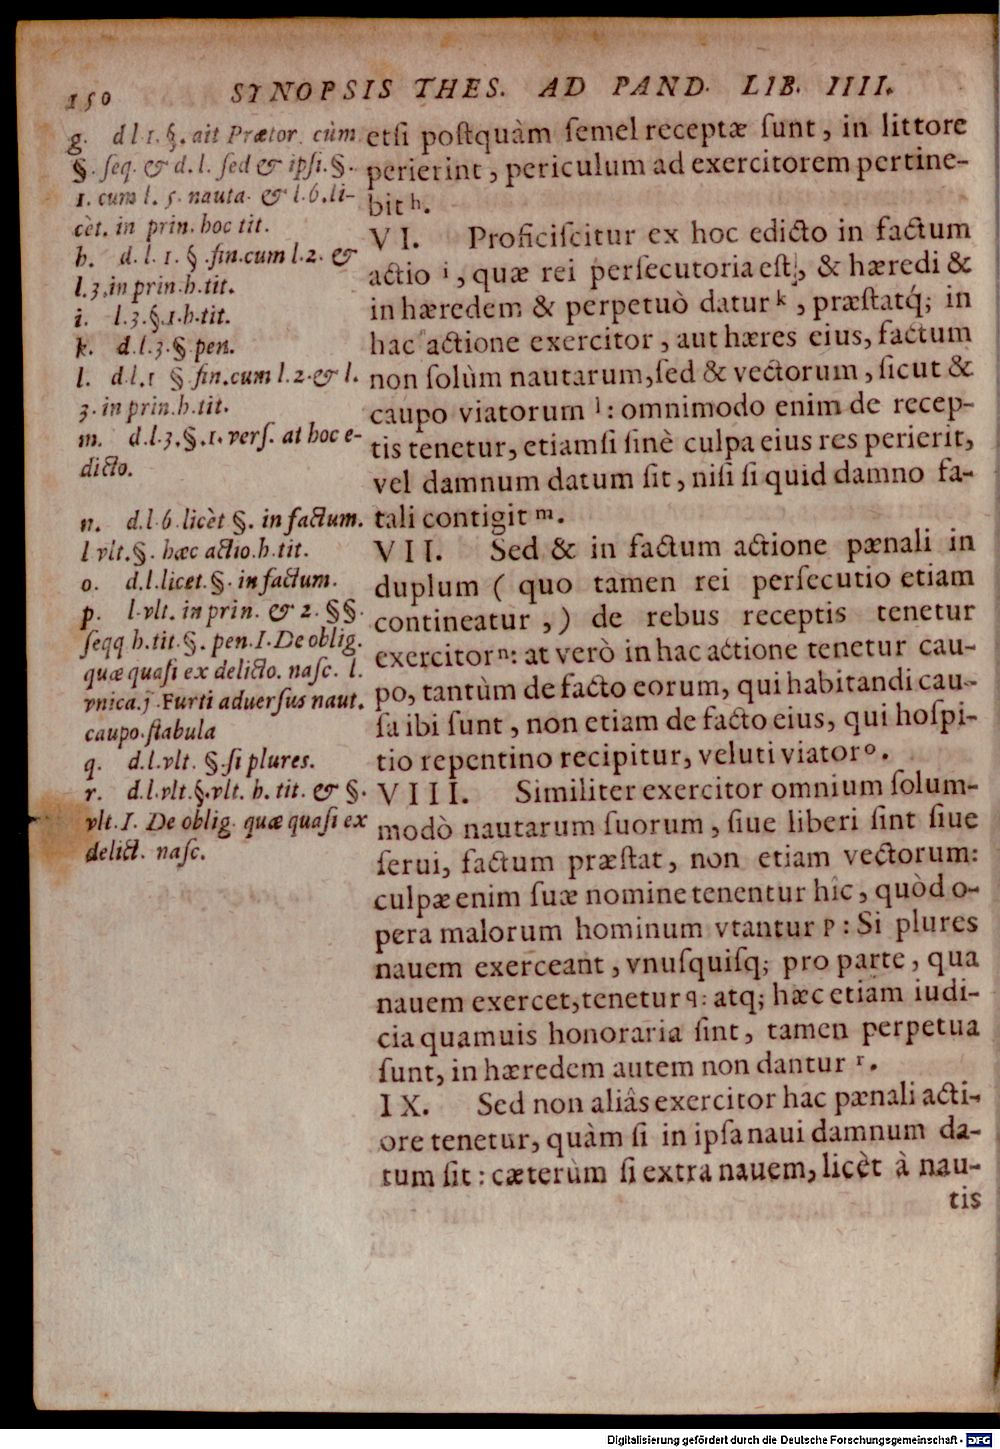 150 SYNOPSIS THES. AD PAND. LIB. IIII.
g. d l 1. §. ait Prætor. cùm
§. ſeq. & d. l. ſed & ipſi. §.
1. cum l. 5. nauta. & l. 6. li-
cèt. in prin. hoc tit.
h. d. l. 1. §. fin. cum l. 2. &
l. 3. in prin. h. tit.
i. l. 3. §. 1. h. tit.
k. d. l. 3. §. pen.
l. d. l. 1 §. fin. cum l. 2. & l.
3. in prin. h. tit.
m. d. l. 3. §. 1. verſ. at hoc e-
dicto.
n. d. l. 6. licèt §. in factum.
l vlt. §. hæc actio. h. tit.
o. d. l. licet. §. in factum.
p. l. vlt. in prin. & 2. §§.
ſeqq h. tit. §. pen. I. De oblig.
quæ quaſi ex delicto. naſc. l.
vnica. j. Furti aduerſus naut.
caupo. ſtabula
q. d. l. vlt. §. ſi plures.
r. d. l. vlt. §. vlt. h. tit. & §.
vlt. I. De oblig. quæ quaſi ex
delict. naſc.
etſi poſtquàm ſemel receptæ ſunt, in littore
perierint, periculum ad exercitorem pertine-
bit h.
VI. Proficiſcitur ex hoc edicto in factum
actio i, quæ rei perſecutoria eſt, & hæredi &
in hæredem & perpetuò datur k, præſtatq́; in
hac actione exercitor, aut hæres eius, factum
non ſolùm nautarum, ſed & vectorum, ſicut &
caupo viatorum l: omnimodo enim de recep-
tis tenetur, etiamſi ſinè culpa eius res perierit,
vel damnum datum ſit, niſi ſi quid damno fa-
tali contigit m.
VII. Sed & in factum actione pænali in
duplum ( quo tamen rei perſecutio etiam
contineatur ,) de rebus receptis tenetur
exercitor n: at verò in hac actione tenetur cau-
po, tantùm de facto eorum, qui habitandi cau-
ſa ibi ſunt, non etiam de facto eius, qui hoſpi-
tio repentino recipitur, veluti viator o.
VIII. Similiter exercitor omnium ſolum-
modò nautarum ſuorum, ſiue liberi ſint ſiue
ſerui, factum præſtat, non etiam vectorum:
culpæ enim ſuæ nomine tenentur hic, quòd o-
pera malorum hominum vtantur p: Si plures
nauem exerceant, vnuſquiſq; pro parte, qua
nauem exercet, tenetur q: atq; hæc etiam iudi-
cia quamuis honoraria ſint, tamen perpetua
ſunt, in hæredem autem non dantur r.
IX. Sed non aliâs exercitor hac pænali acti-
ore tenetur, quàm ſi in ipſa naui damnum da-
tum ſit: cæterùm ſi extra nauem, licèt à nau-
tis
Digitalisierung gefördert durch die Deutsche Forschungsgemeinschaft - DFG